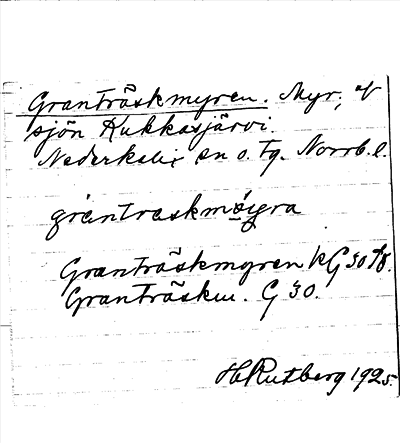 Granträskmyren. Myr, v
sjön Kukkasjärvi.
Nederkalix sn o. tg. Norrb. l.
gràntraskmø̀yra
Granträskmyren kG 30 f8.
Granträskm. G 30.
H Rutberg 1925.